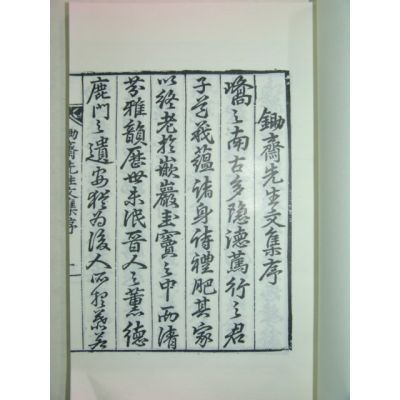 鋤齋先生文集序
嶠之南古多隐德篤行之君
子蘊諸身詩禮肥其家
以終老於嵌巖圭竇之中而清
芬雅韻歷世未泯晉人之薰德
鹿門之遺安猶為後人所
鋤齋先生文集序 一